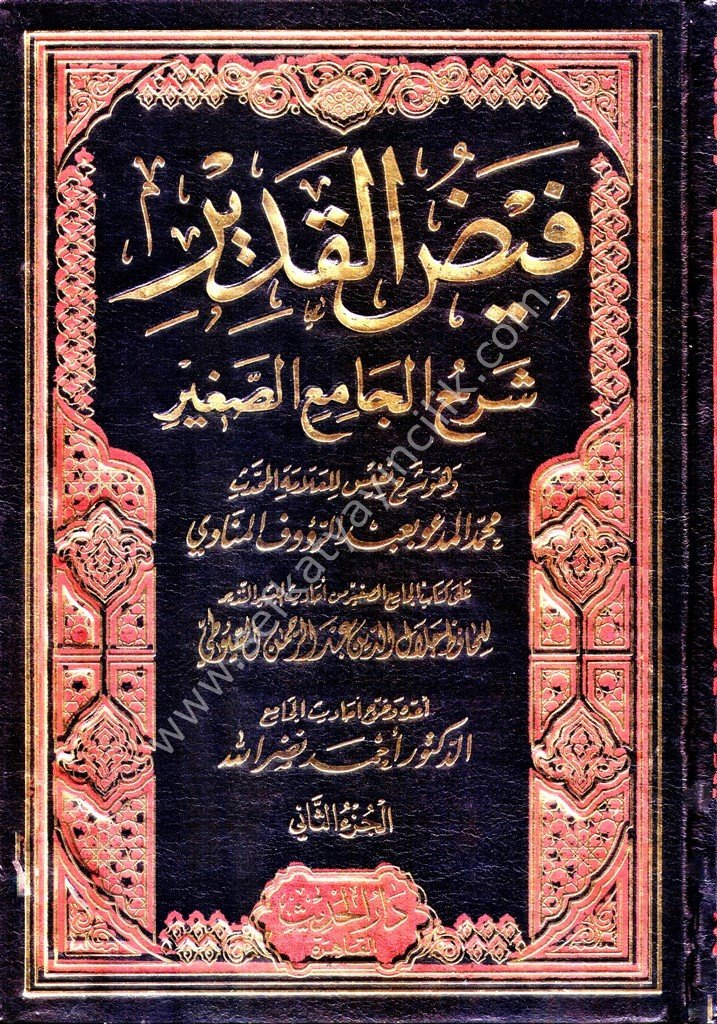 فَيْضُ القَدِيْرِ
شَرْحُ الجَامِعِ الصَّغِيْرِ
وَهُوَ شَرْح نَفِيْس لِلعَلاَّمَة المُحَدِّث
مُحَمَّد المَدعُو بِعَبْد الرَّؤُوف المنَاوي
عَلىٰ كتَاب الجَامِع الصَّغِيْر مِن أحَاديث البَشير النَّذير
لِلحَافِظ جَلَال الدِّين عَبْد الرَّحمٰن السّيُوطيّ
أعَدَّه وخرّج أحَاديث الجَامِع
الدّكتور أحْمَد نصْر اللّٰه
الجُزءُ الثَّاني
دَارُ الحَدِيث
القَاهِرَة
www.sefkatyayincilik.com